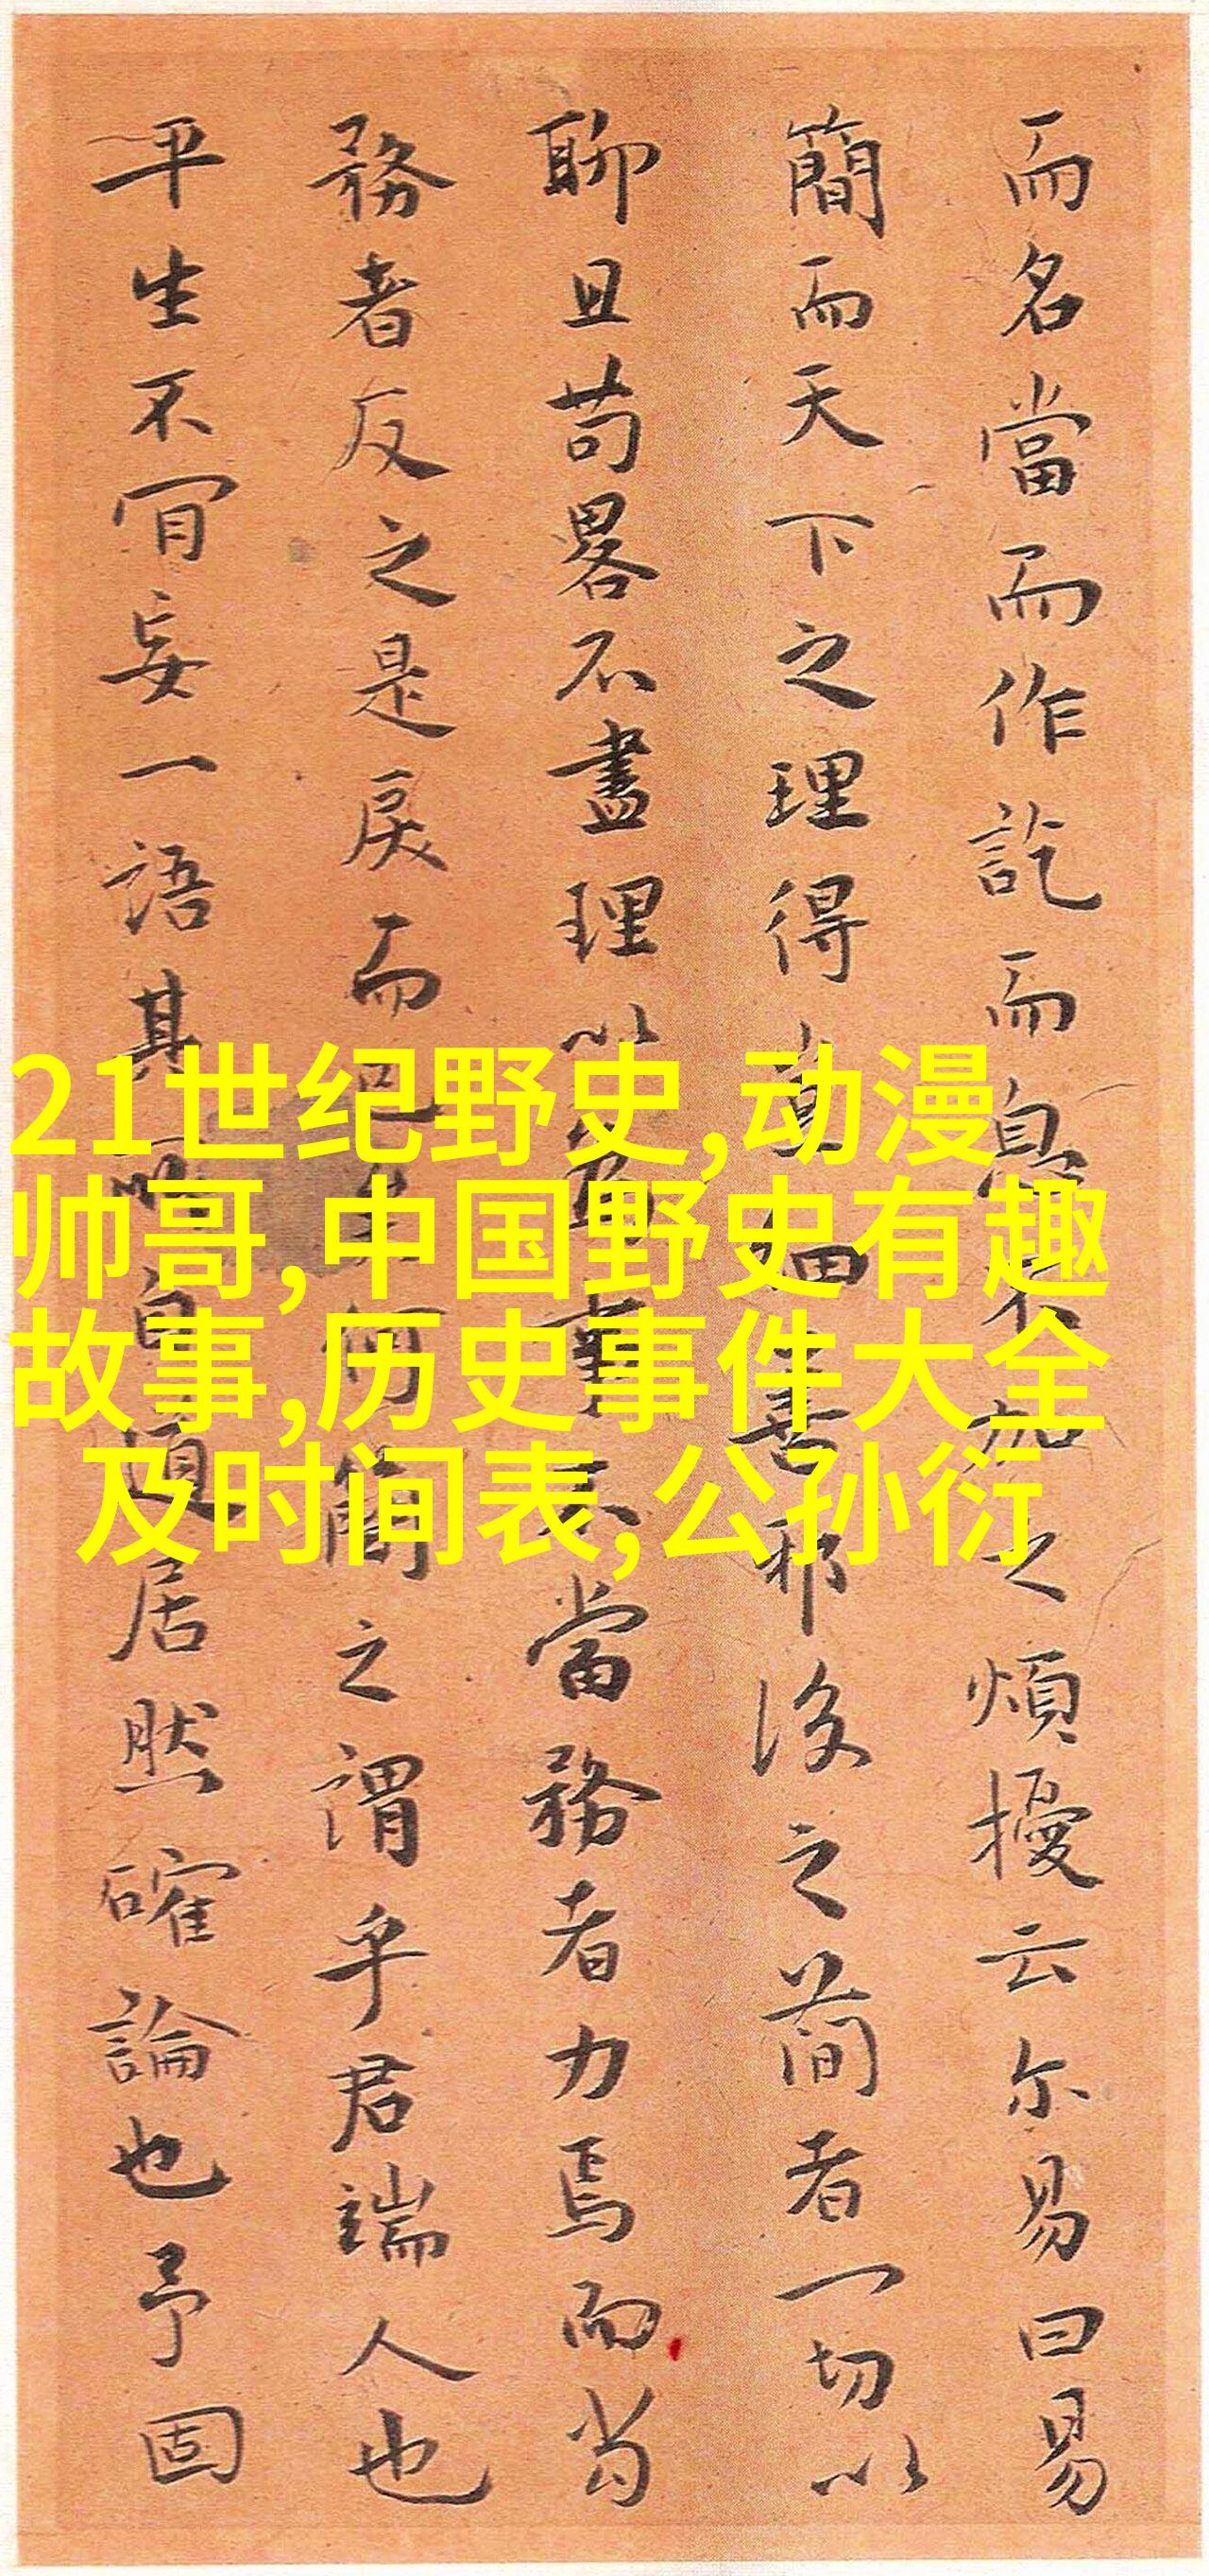 而名當而作訖而息不加之煩擾云尔易曰易
簡而天下之理得善邪後之簡者一切以
聊且苟畧不盡理以為當務者力焉而当
務者反之是戾而已矣何簡之謂乎君端人也
平生不肎妄一語其所自道居然確論也予固
21世纪野史,动漫
帅哥,中国野史有趣
故事,历史事件大全
及时间表,公孙衍